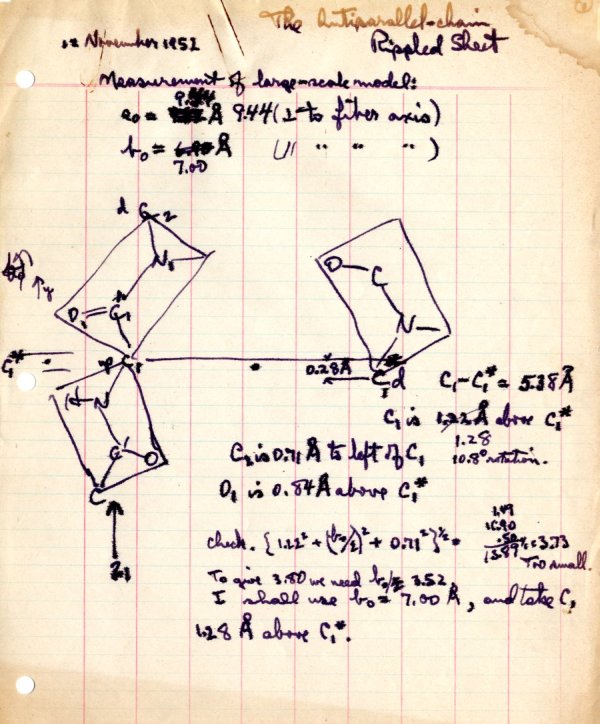 The Antiparallel-chain
Rippled Sheet
November 1952
Measurement of large-scale model:
9.44
a₀ = Å 9.44 (⊥ to fiber axis)
b₀ = Å (|| " " " )
7.00
C₂
N
O₁ = C₁'
↑y
C₁*
C₁
N
C'
O
C
2₁
O—C
N—
0.28Å
C₁ d
C₁–C₁* = 5.38 Å
C₁ is 1.22 Å above C₁*
1.28
10.8° rotation.
C₂ is 0.71 Å to left of C₁
O₁ is 0.84 Å above C₁*
check. {1.22² + (b₀/2)² + 0.71²}^½ =
1.49
.50
13.89^½ = 3.73
Too small.
To give 3.80 we need b₀/2 = 3.52.
I shall use b₀ = 7.00 Å, and take C₁
1.28 Å above C₁*.